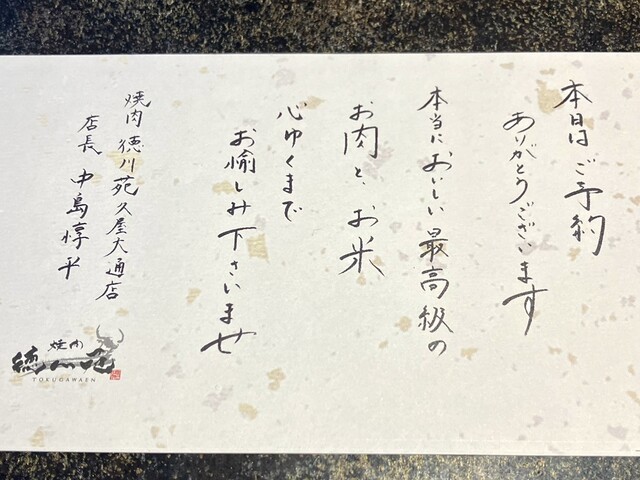 本日はご予約
ありがとうございます
本当においしい最高級の
お肉と、お米
心ゆくまで
お愉しみ下さいませ
焼肉 徳川苑久屋大通店
店長 中島惇平
焼肉
徳川苑
TOKUGAWAEN